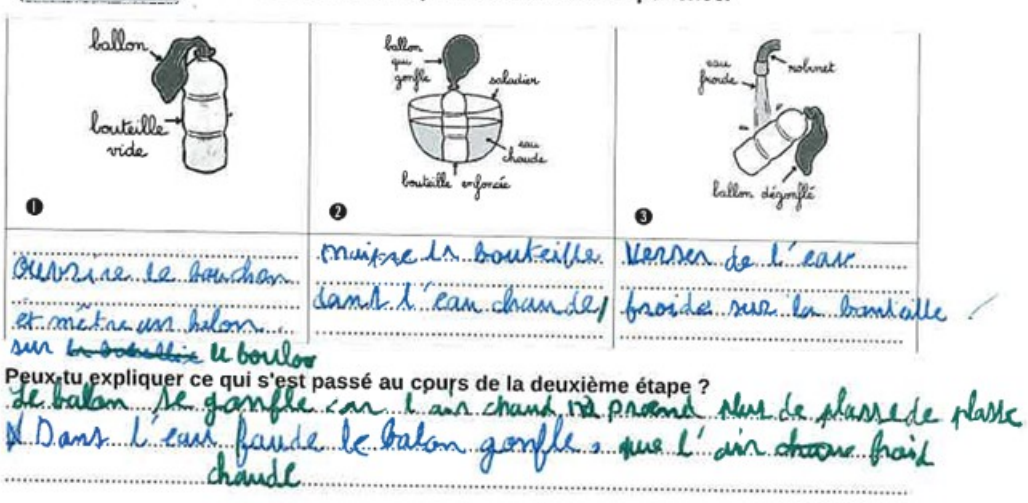 ballon
bouteille
vide
❶
ballon
qui
gonfle
saladier
eau
chaude
bouteille enfoncée
❷
eau
froide
robinet
ballon dégonflé
❸
ouvrire le bouchon
et mêtre un balon
sur le
maitre la bouteille
dans l'eau chaude
Verser de l'eau
froide sur la boutaille
Peux-tu expliquer ce qui s'est passé au cours de la deuxième étape ?
Le balon se gonfle car l'air chaud prend plus de plasse de plasse
Dans l'eau le balon gonfle, que l'air froid
chaude